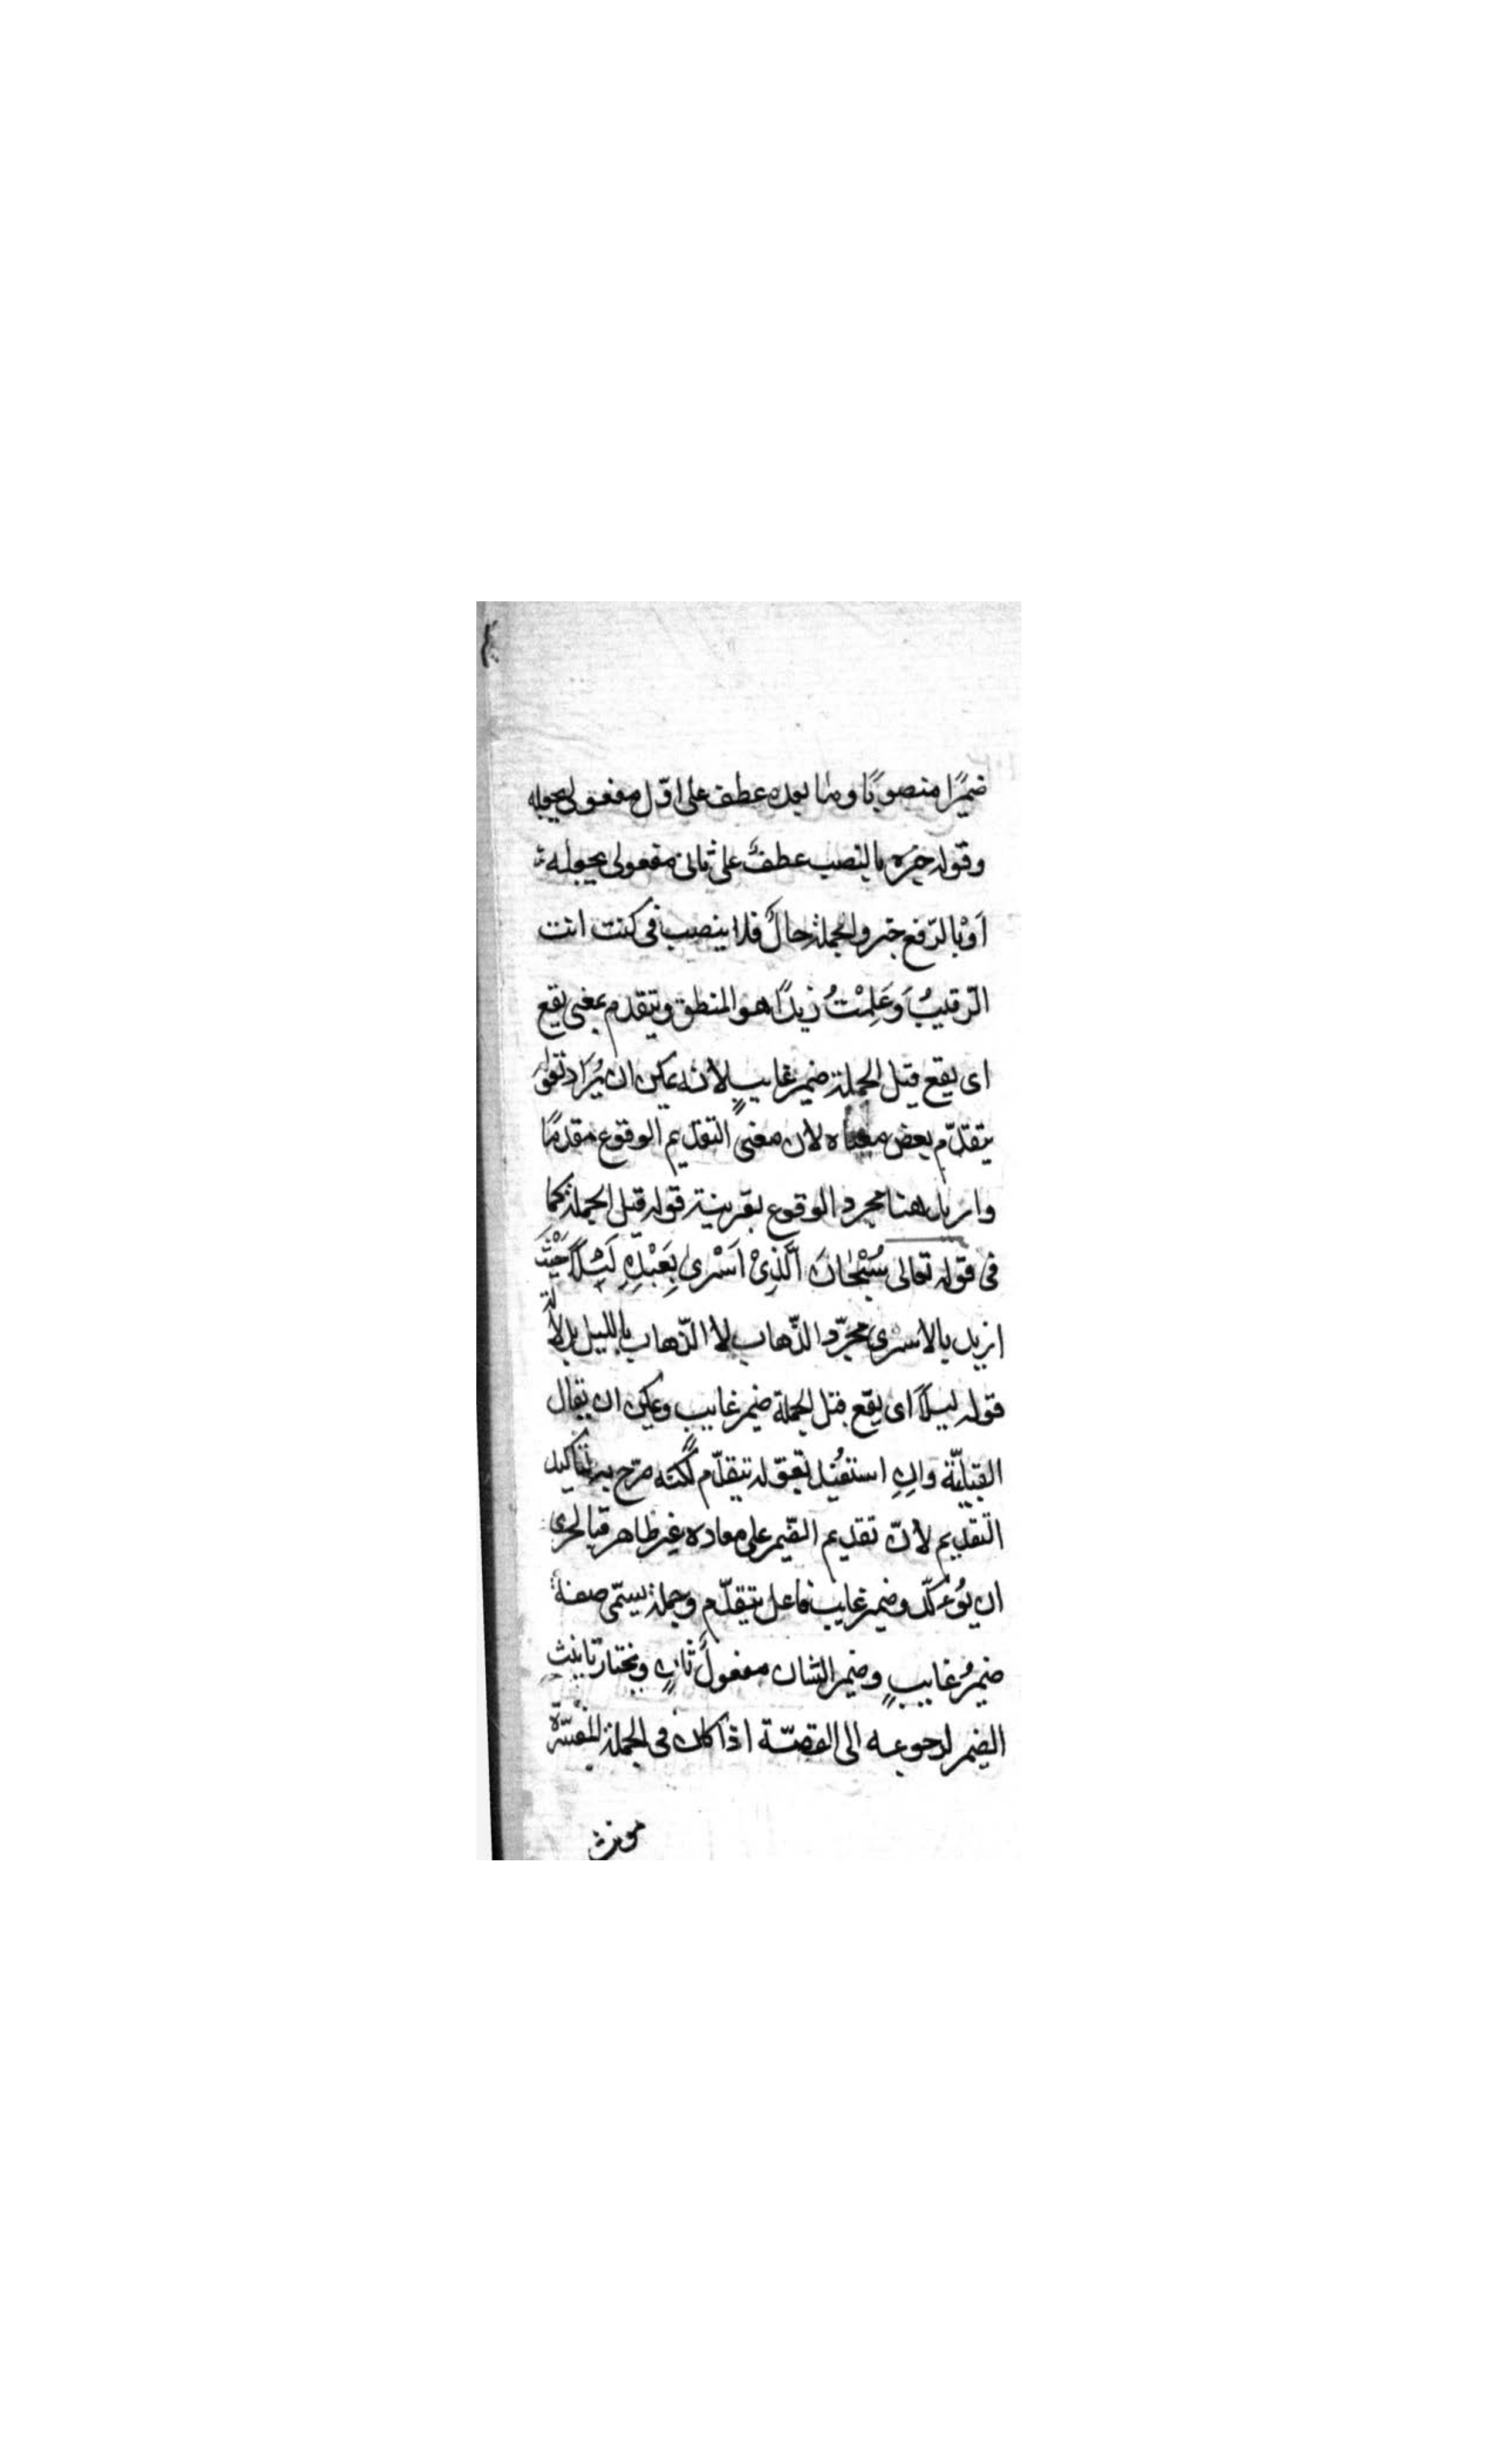 ضميرًا منصوبًا وما بعده عطف على اوّل مفعولى يجعله
وقوله خبره بالنصب عطفٌ على ثانى مفعولى يجعله
اَوْ بالرّفع خبر والجملة حالٌ فلا ينصب فى كنت انت
الرّقيبُ وَعَلِمْتُ زيدًا هو المنطق ويتقدم بمعنى يقع
اى يقع قبل الجملة ضمير غايبٍ لانه يمكن ان يُرَاد بقوله
يتقدّم بعض معناه لان معنى التقديم الوقوع مقدمًا
واريد هنا مجرد الوقوع بقرينة قوله قبل الجملة كما
فى قوله تعالى سُبْحَانَ الَّذِىْ اَسْرٰى بِعَبْدِهِ لَيْلًا حَيْثُ
اريد بالاسرى مجرّد الذّهاب لا الذّهاب بالليل بدلالة
قوله ليلًا اى يقع قبل الجملة ضمير غايب ويمكن ان يقال
القبليّة وانِ استفيد بقوله يتقدّم لكنّه صرّح به لتاكيد
التقديم لانّ تقديم الضّمير على معاده غير ظاهر فبالحرى
ان يُؤكّد وضمير غايب فاعل يتقدّم وجملة يسمّى صفة
ضميرُ غايبٍ وضمير الشان مفعولٌ ثانٍ ويختار تانيث
الضمير لرجوعه الى القصّة اذا كان فى الجملة المفسّرة
مونث